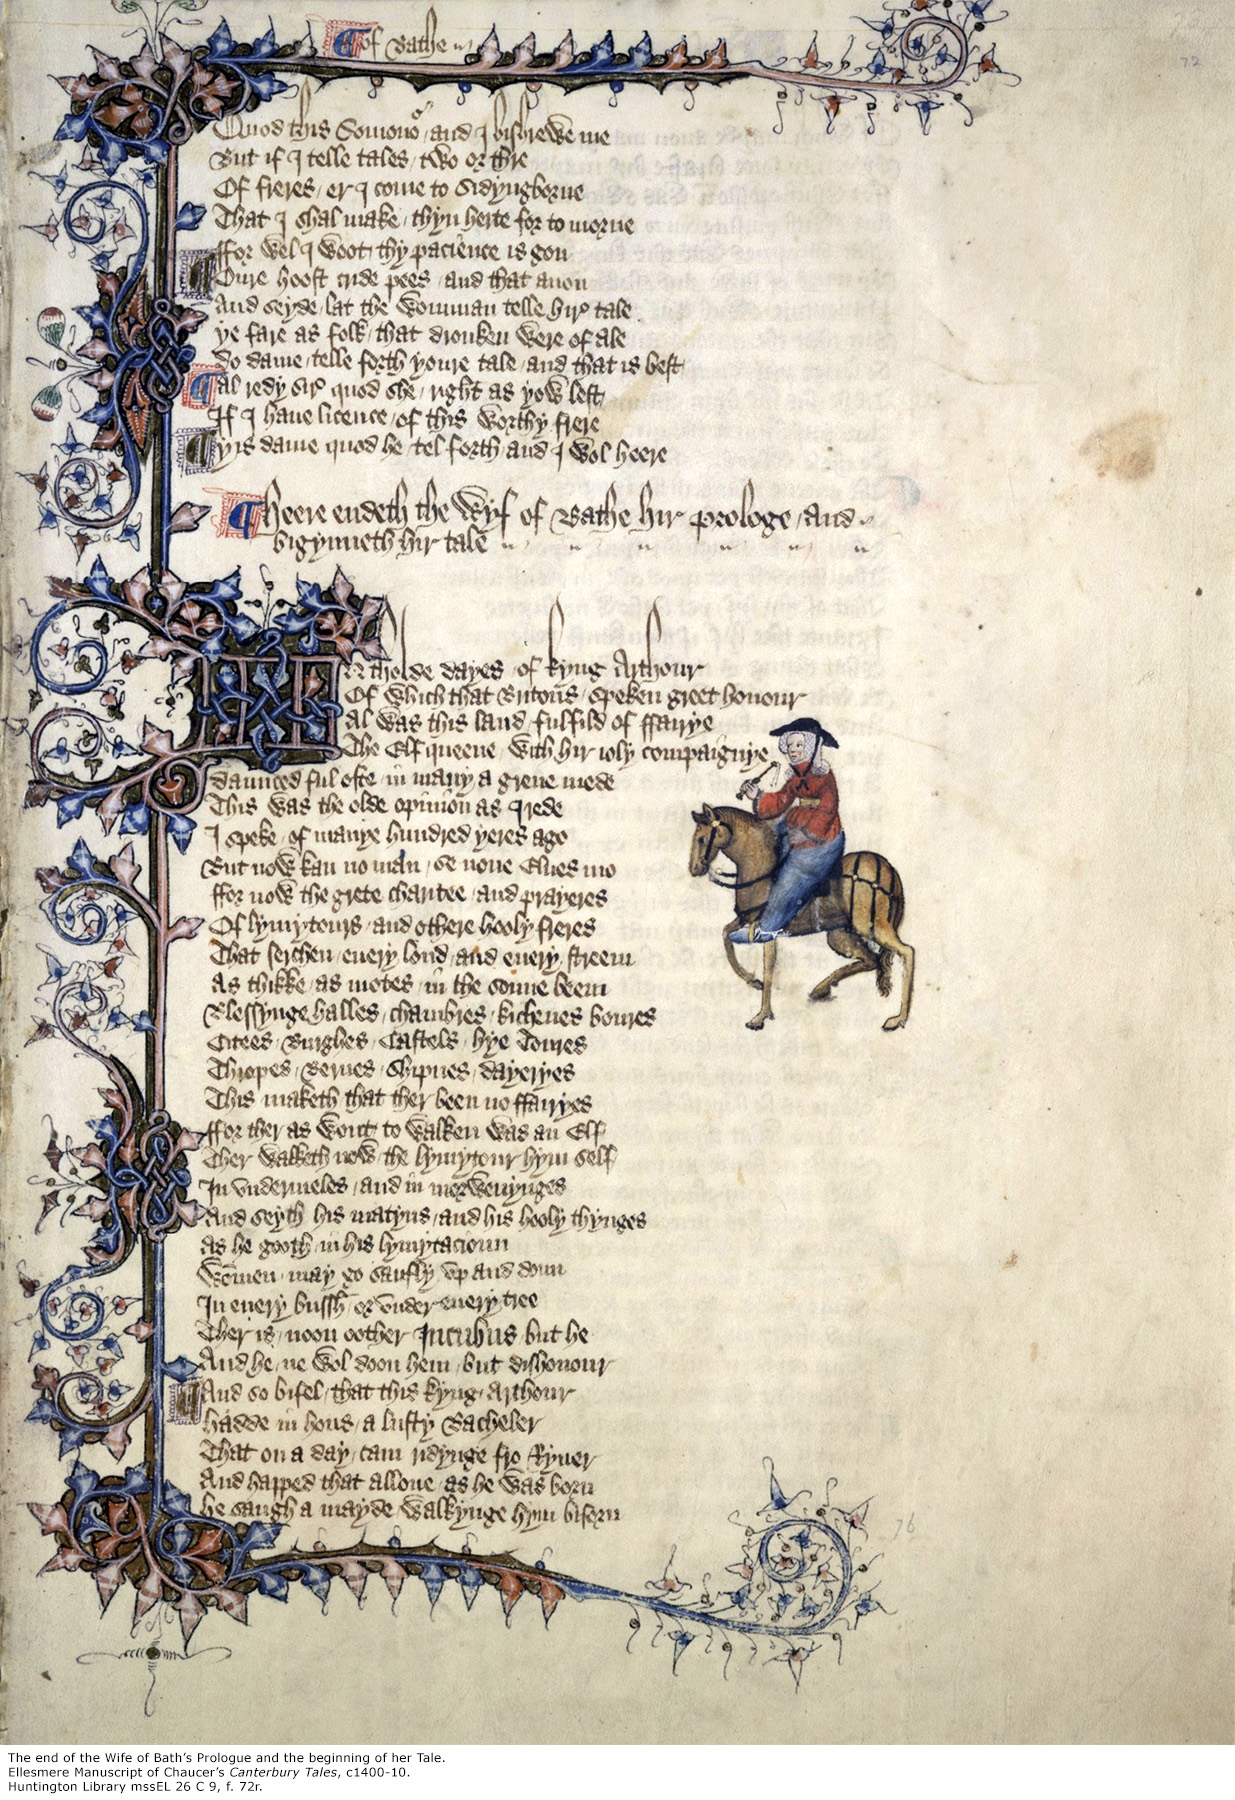 of Bathe
72
Quod this Somonor / and I bishrewe me
But if I telle tales / two or thre
Of freres / er I come to Sidyngborne
That I shal make / thyn herte for to morne
ffor wel I woot / thy pacience is gon
Oure hoost cride pees / and that anon
And seyde / lat the womman telle hir tale
ye fare as folk / that dronken were of ale
Do dame / telle forth youre tale / and that is best
Al redy sir quod she / right as yow lest
If I haue licence / of this worthy frere
yis dame quod he / tel forth / and I wol heere
Heere endeth the Wyf of Bathe hir prologe / and
bigynneth hir tale
IN tholde dayes / of kyng Arthour
Of which that Britons / speken greet honour
Al was this land / fulfild of ffairye
The Elf queene / with hir ioly compaignye
daunced ful ofte / in many a grene mede
This was the olde opinion as I rede
I speke / of manye hundred yeres ago
But now kan no man / se none Elues mo
ffor now the grete charitee / and prayeres
Of lymytours / and othere hooly freres
That serchen / euery lond / and euery streem
As thikke / as motes / in the sonne beem
Blessynge halles / chambres / kichenes boures
Citees / Burghes / Castels / hye Toures
Thropes / Bernes / Shipnes / dayeryes
This maketh that ther been no ffairyes
ffor ther as wont to walken was an Elf
Ther walketh now / the lymytour hym self
In vndermeles / and in morwenynges
And seyth his matyns / and his hooly thynges
as he gooth / in his lymytacioun
wommen / may go saufly / vp and doun
In euery bussh / or vnder euery tree
Ther is / noon oother Incubus / but he
And he / ne wol doon hem / but dishonour
And so bifel / that this kyng / Arthour
hadde in hous / a lusty Bacheler
That on a day / cam ridynge fro Ryuer
And happed that allone / as he was born
he saugh a mayde / walkynge hym biforn
76
The end of the Wife of Bath’s Prologue and the beginning of her Tale.
Ellesmere Manuscript of Chaucer’s Canterbury Tales, c1400-10.
Huntington Library mssEL 26 C 9, f. 72r.